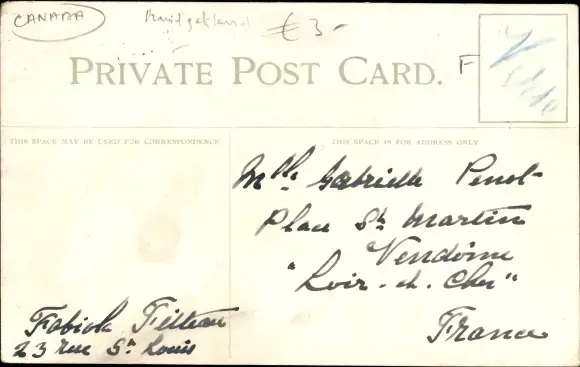 CANADA
€ 3-
PRIVATE POST CARD.
F
THIS SPACE MAY BE USED FOR CORRESPONDENCE
THIS SPACE IS FOR ADDRESS ONLY
Mlle Gabrielle Penot
Place St Martin
Vendôme
"Loir-et-Cher"
France
Fabiola Filteau
23 rue St Louis